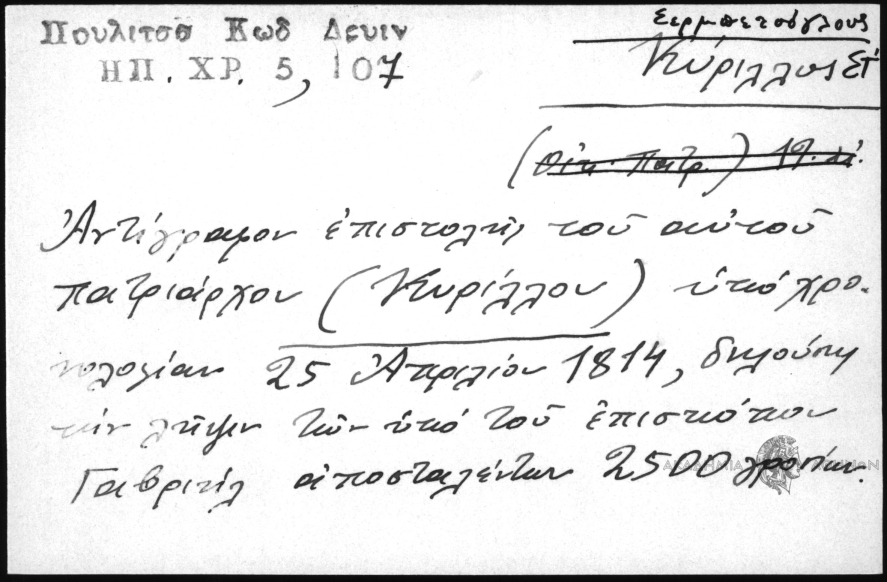 Πουλιτσα Κωδ Δεντν
ΗΠ. ΧΡ. 5, 107
Σερμπετσόγλους
Κύριλλος Στ'
(Οἰκ. Πατρ.) 19. αἰ.
Ἀντίγραφον ἐπιστολῆς τοῦ αὐτοῦ
πατριάρχου (Κυρίλλου) ὑπό χρο-
νολογίαν 25 Ἀπριλίου 1814, δηλούσης
τήν λῆψιν τῶν ὑπό τοῦ ἐπισκόπου
Γαβριήλ ἀποσταλέντων 2500 γροσίων.
ΑΚΑΔΗΜΙΑ ΑΘΗΝΩΝ